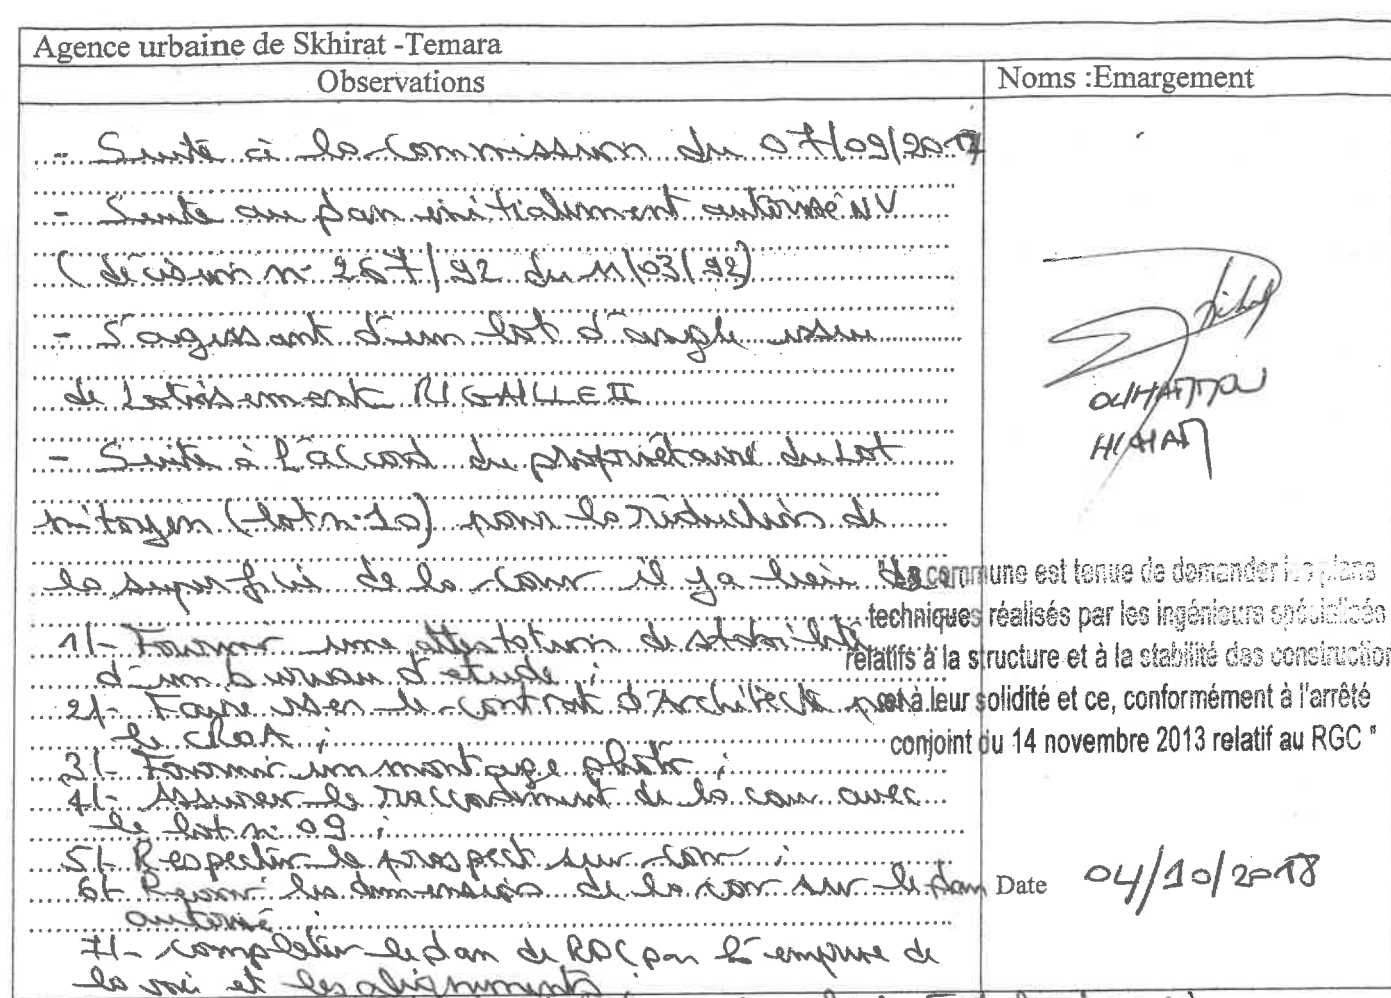 Agence urbaine de Skhirat -Temara
Observations
Noms :Emargement
- Suite à la commission du 07/09/2017
- Suite au plan initialement autorisé NV
(décision n° 267/92 du 11/03/92)
- S'agissant d'un lot d'angle issu
de Lotissement RIGAILLE II
- Suite à l'accord du propriétaire du Lot
mitoyen (lot n°10) pour la réduction de
la superficie de la cour il y a lieu de
1/- Fournir une attestation de stabilité
d'un bureau d'étude ;
2/- Faire viser le contrat d'architecte par
le CROA ;
3/- Fournir un montage photo ;
4/- Assurer le raccordement de la cour avec
le lot n° 09 ;
5/- Respecter le prospect sur cour ;
6/- Revoir les dimensions de la cour sur le plan
autorisé ;
7/- compléter le plan de RDC par l'emprise de
la voie et les alignements ;
OUHATTOU
HICHAM
"La commune est tenue de demander les plans
techniques réalisés par les ingénieurs spécialisés
relatifs à la structure et à la stabilité des construction
et à leur solidité et ce, conformément à l'arrêté
conjoint du 14 novembre 2013 relatif au RGC "
Date 04/10/2018